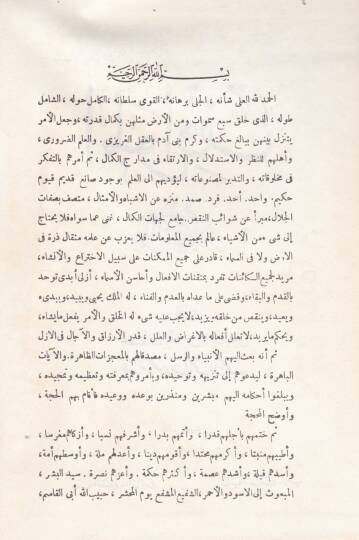 بسم الله الرحمن الرحيم
الحمد لله العلى شأنه ، الجلى برهانه ، القوى سلطانه ، الكامل حوله ، الشامل
طوله ، الذى خلق سبع سموات ومن الأرض مثلهن بكمال قدرته ، وجعل الأمر
يتنزل بينهن ببالغ حكمته ، وكرم بنى آدم بالعقل الغريزى . والعلم الضرورى ،
وأهلهم للنظر والاستدلال ، والارتقاء فى مدارج الكمال ، ثم أمرهم بالتفكر
فى مخلوقاته ، والتدبر لمصنوعاته ، ليؤديهم الى العلم بوجود صانع قديم قيوم
حكيم . واحد . أحد . فرد . صمد . منزه عن الأشباه والأمثال ، متصف بصفات
الجلال ، مبرأ عن شوائب النقص . جامع لجهات الكمال ، غنى عما سواه فلا يحتاج
إلى شىء من الأشياء ، عالم بجميع المعلومات فلا يعزب عن علمه مثقال ذرة فى
الارض ولا فى السماء ، قادر على جميع الممكنات على سبيل الاختراع والانشاء ،
مريد لجميع الكائنات تفرد بمتقنات الافعال وأحاسن الأسماء ، أزلى أبدى توحد
بالقدم والبقاء ، وقضى على ما عداه بالعدم والفناء ، له الملك يحيى ويبيد ، ويبدىء
ويعيد ، وينقص من خلقه ويزيد ، لا يجب عليه شىء له الخلق والأمر يفعل ما يشاء ،
ويحكم ما يريد لاتعلل أفعاله بالاغراض والعلل ، قدر الأرزاق والآجال فى الازل
ثم أنه بعث اليهم الأنبياء والرسل ، مصدقا لهم بالمعجزات الظاهرة . والآيات
الباهرة ، ليدعوهم إلى تنزيهه وتوحيده ، ويأمروهم بمعرفته وتعظيمه وتمجيده ،
ويبلغوا أحكامه اليهم مبشرين ومنذرين بوعده ووعيده فأقام بهم الحجة ،
وأوضح المحجة
ثم ختمهم بأجلهم قدرا ، وأتمهم بدرا ، وأشرفهم نسبا ، وأزكاهم مغرسا ،
وأطيبهم منبتا ، وأكرمهم محتدا ، وأقومهم دينا ، وأعدلهم ملة ، وأوسطهم أمة ،
وأسدهم قبلة ، وأشدهم عصمة ، وأكثرهم حكمة . وأعزهم نصرة . سيد البشر ،
المبعوث إلى الاسود والاحمر ، الشفيع المشفع يوم المحشر ، حبيب الله أبى القاسم ،